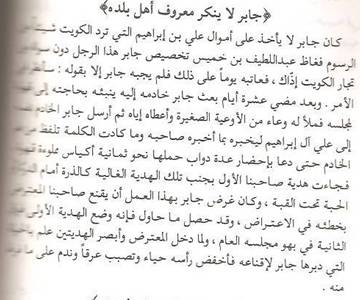 ﴿جابر لا ينكر معروف أهل بلده﴾
كان جابر لا يأخذ على أموال علي بن إبراهيم التي ترد الكويت شيئاً من
الرسوم فغاظ عبداللطيف بن خميس تخصيص جابر هذا الرجل دون سواه من
تجار الكويت إذ ذاك، فعاتبه يوماً على ذلك فلم يجبه جابر إلا بقوله :
الأمر . وبعد مضي عشرة أيام بعث جابر خادمه إليه ينبئه بحاجته إلى
للمجلس فملأ له وعاء من الأوعية الصغيرة وأعطاه إياه ثم أرسل جابر الخادم
إلى علي آل إبراهيم ليخبره بما أخبره صاحبه وما كادت الكلمة تلفظ من
الخادم حتى دعا بإحضار عدة دواب حملها نحو ثمانية أكياس مملوءة
فجاءت هدية صاحبنا الأول بجنب تلك الهدية الغالية كالذرة أمام
الحبة تحت القبة ، وكان غرض جابر بهذا العمل أن يقنع صاحبنا
بخطئه في الاعتراض ، وقد حصل ما حاول فإنه وضع الهدية الأولى
الثانية في بهو مجلسه العام ، ولما دخل المعترض وأبصر الهديتين علم
التي دبرها جابر لإقناعه فأخفض رأسه حياء وتصبب عرقاً وندم على ما
منه .